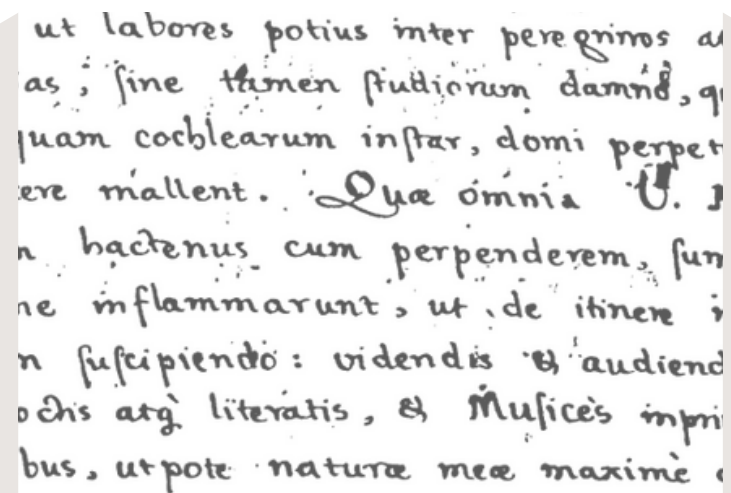 ut labores potius inter peregrinos a
as, ſine tamen ſtudiorum damno, q
quam cochlearum inſtar, domi perpet
ere mallent. Quæ omnia V.
n hactenus cum perpenderem, ſum
ne inflammarunt, ut de itinere i
n ſuſcipiendo: videndis & audiend
ochis atq̀ literatis, & Muſices impri
bus, utpote naturæ meæ maximè